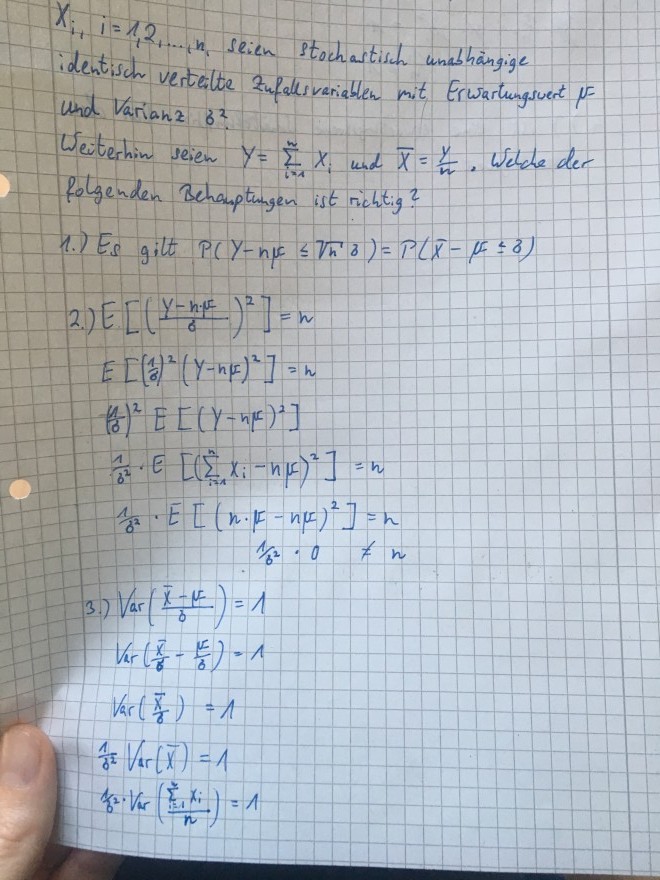 Xi, i=1,2,...,n, seien stochastisch unabhängige
identisch verteilte Zufallsvariablen mit Erwartungswert μ
und Varianz σ².
Weiterhin seien Y = Σ_{i=1}^{n} Xi und X̄ = Y/n. Welche der
folgenden Behauptungen ist richtig?
1.) Es gilt P(Y-nμ ≤ √n σ) = P(X̄ - μ ≤ σ)
2.) E[((Y-n·μ)/σ)²] = n
E[(1/σ)² (Y-nμ)²] = n
(1/σ)² E[(Y-nμ)²]
1/σ² · E[(Σ_{i=1}^{n} Xi - nμ)²] = n
1/σ² · E[(n·μ - nμ)²] = n
1/σ² · 0 ≠ n
3.) Var((X̄-μ)/σ) = 1
Var(X̄/σ - μ/σ) = 1
Var(X̄/σ) = 1
1/σ² Var(X̄) = 1
1/σ² · Var((Σ_{i=1}^{n} Xi)/n) = 1